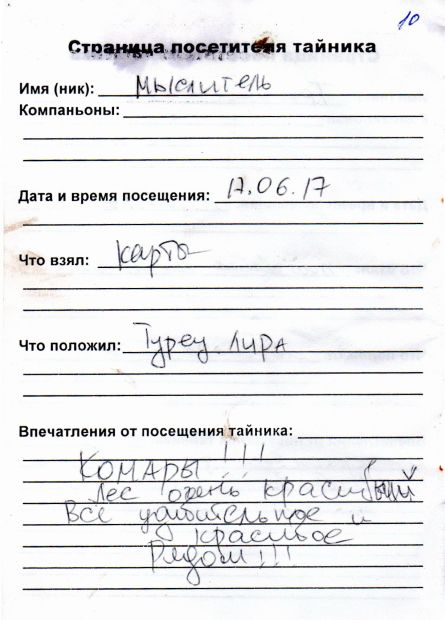 10
Страница посетителя тайника
Имя (ник): Мыслитель
Компаньоны:
Дата и время посещения: 17.06.17
Что взял: карты
Что положил: Турец. Лира
Впечатления от посещения тайника:
Комары!!!
Лес очень красивый
Всё удивительное и
красивое
Рядом!!!